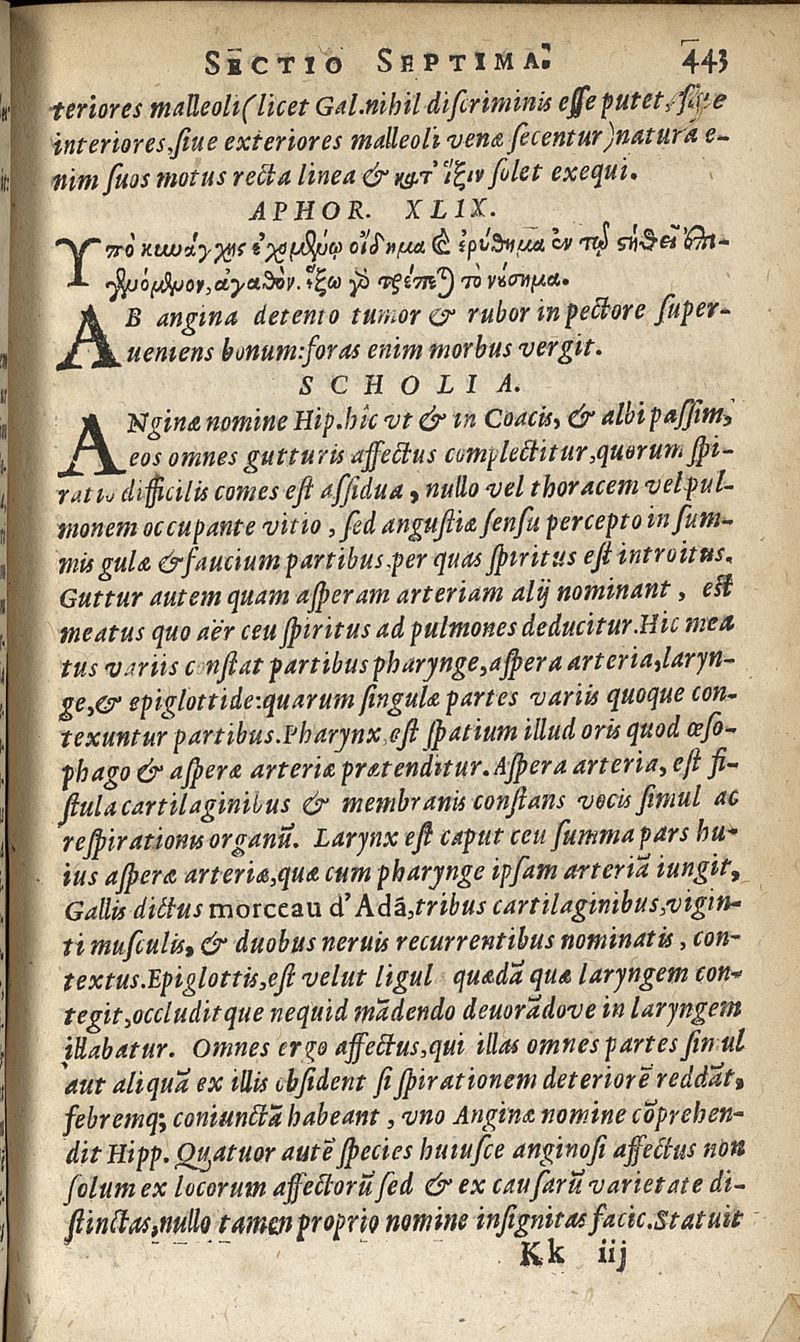 SECTIO SEPTIMA. 443
teriores malleoli (licet Gal. nihil discriminis esse putet, siue
interiores, siue exteriores malleoli venæ secentur) natura e-
nim suos motus recta linea & κατ' ἴξιν solet exequi.
APHOR. XLIX.
Υπὸ κυνάγχης ἐχομένῳ οἴδημα καὶ ἐρύθημα ἐν τῷ στήθει ἐπι-
γενόμενον, ἀγαθόν. ἔξω γὰρ τρέπεται τὸ νόσημα.
AB angina detento tumor & rubor in pectore super-
ueniens bonum: foras enim morbus vergit.
SCHOLIA.
ANginæ nomine Hip. hîc vt & in Coacis, & albi passim,
eos omnes gutturis affectus complectitur, quorum spi-
ratio difficilis comes est assidua, nullo vel thoracem vel pul-
monem occupante vitio, sed angustiæ sensu percepto in sum-
mis gulæ & faucium partibus, per quas spiritus est introitus.
Guttur autem quam asperam arteriam alij nominant, est
meatus quo aër ceu spiritus ad pulmones deducitur. Hic mea
tus variis constat partibus pharynge, aspera arteria, laryn-
ge, & epiglottide: quarum singulæ partes variis quoque con-
texuntur partibus. Pharynx est spatium illud oris quod œso-
phago & asperæ arteriæ prætenditur. Aspera arteria, est fi-
stula cartilaginibus & membranis constans vocis simul ac
respirationis organū. Larynx est caput ceu summa pars hu-
ius asperæ arteriæ, quæ cum pharynge ipsam arteriā iungit,
Gallis dictus morceau d'Adā, tribus cartilaginibus, vigin-
ti musculis, & duobus neruis recurrentibus nominatis, con-
textus. Epiglottis, est velut ligul quædā quæ laryngem con-
tegit, occluditque nequid mādendo deuorādove in laryngem
illabatur. Omnes ergo affectus, qui illas omnes partes simul
aut aliquā ex illis obsident si spirationem deteriorē reddāt,
febremq; coniunctā habeant, vno Anginæ nomine cōprehen-
dit Hipp. Quatuor autē species huiusce anginosi affectus non
solum ex locorum affectorū sed & ex causarū varietate di-
stinctas, nullo tamen proprio nomine insignitas facic. Statuit
Kk iij